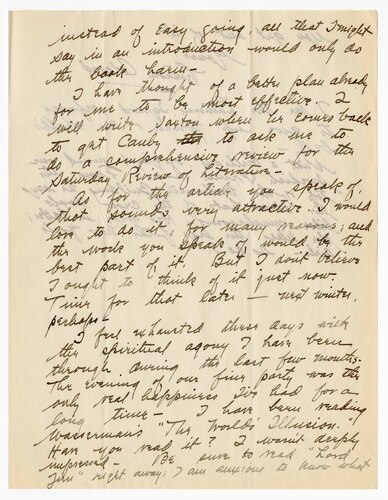 instead of easy going, all that I might
say in an introduction would only do
the book harm—
I have thought of a better plan already
for me to be most effective. I
will write Saxton when he comes back
to get Canby to ask me to
do a comprehensive review for the
Saturday Review of Literature—
As for the article you speak of,
that sounds very attractive. I would
love to do it, for many reasons; and
the work you speak of would be the
best part of it. But I don't believe
I ought to think of it just now.
Time for that later — next winter,
perhaps—
I feel exhausted these days with
the spiritual agony I have been
through during the last few months.
The evening of our fine party was the
only real happiness I've had for a
long time— I have been reading
Wasserman's "The World's Illusion."
Have you read it? I wasn't deeply
impressed— Be sure to read "Lord
Jim" right away; I am anxious to know what